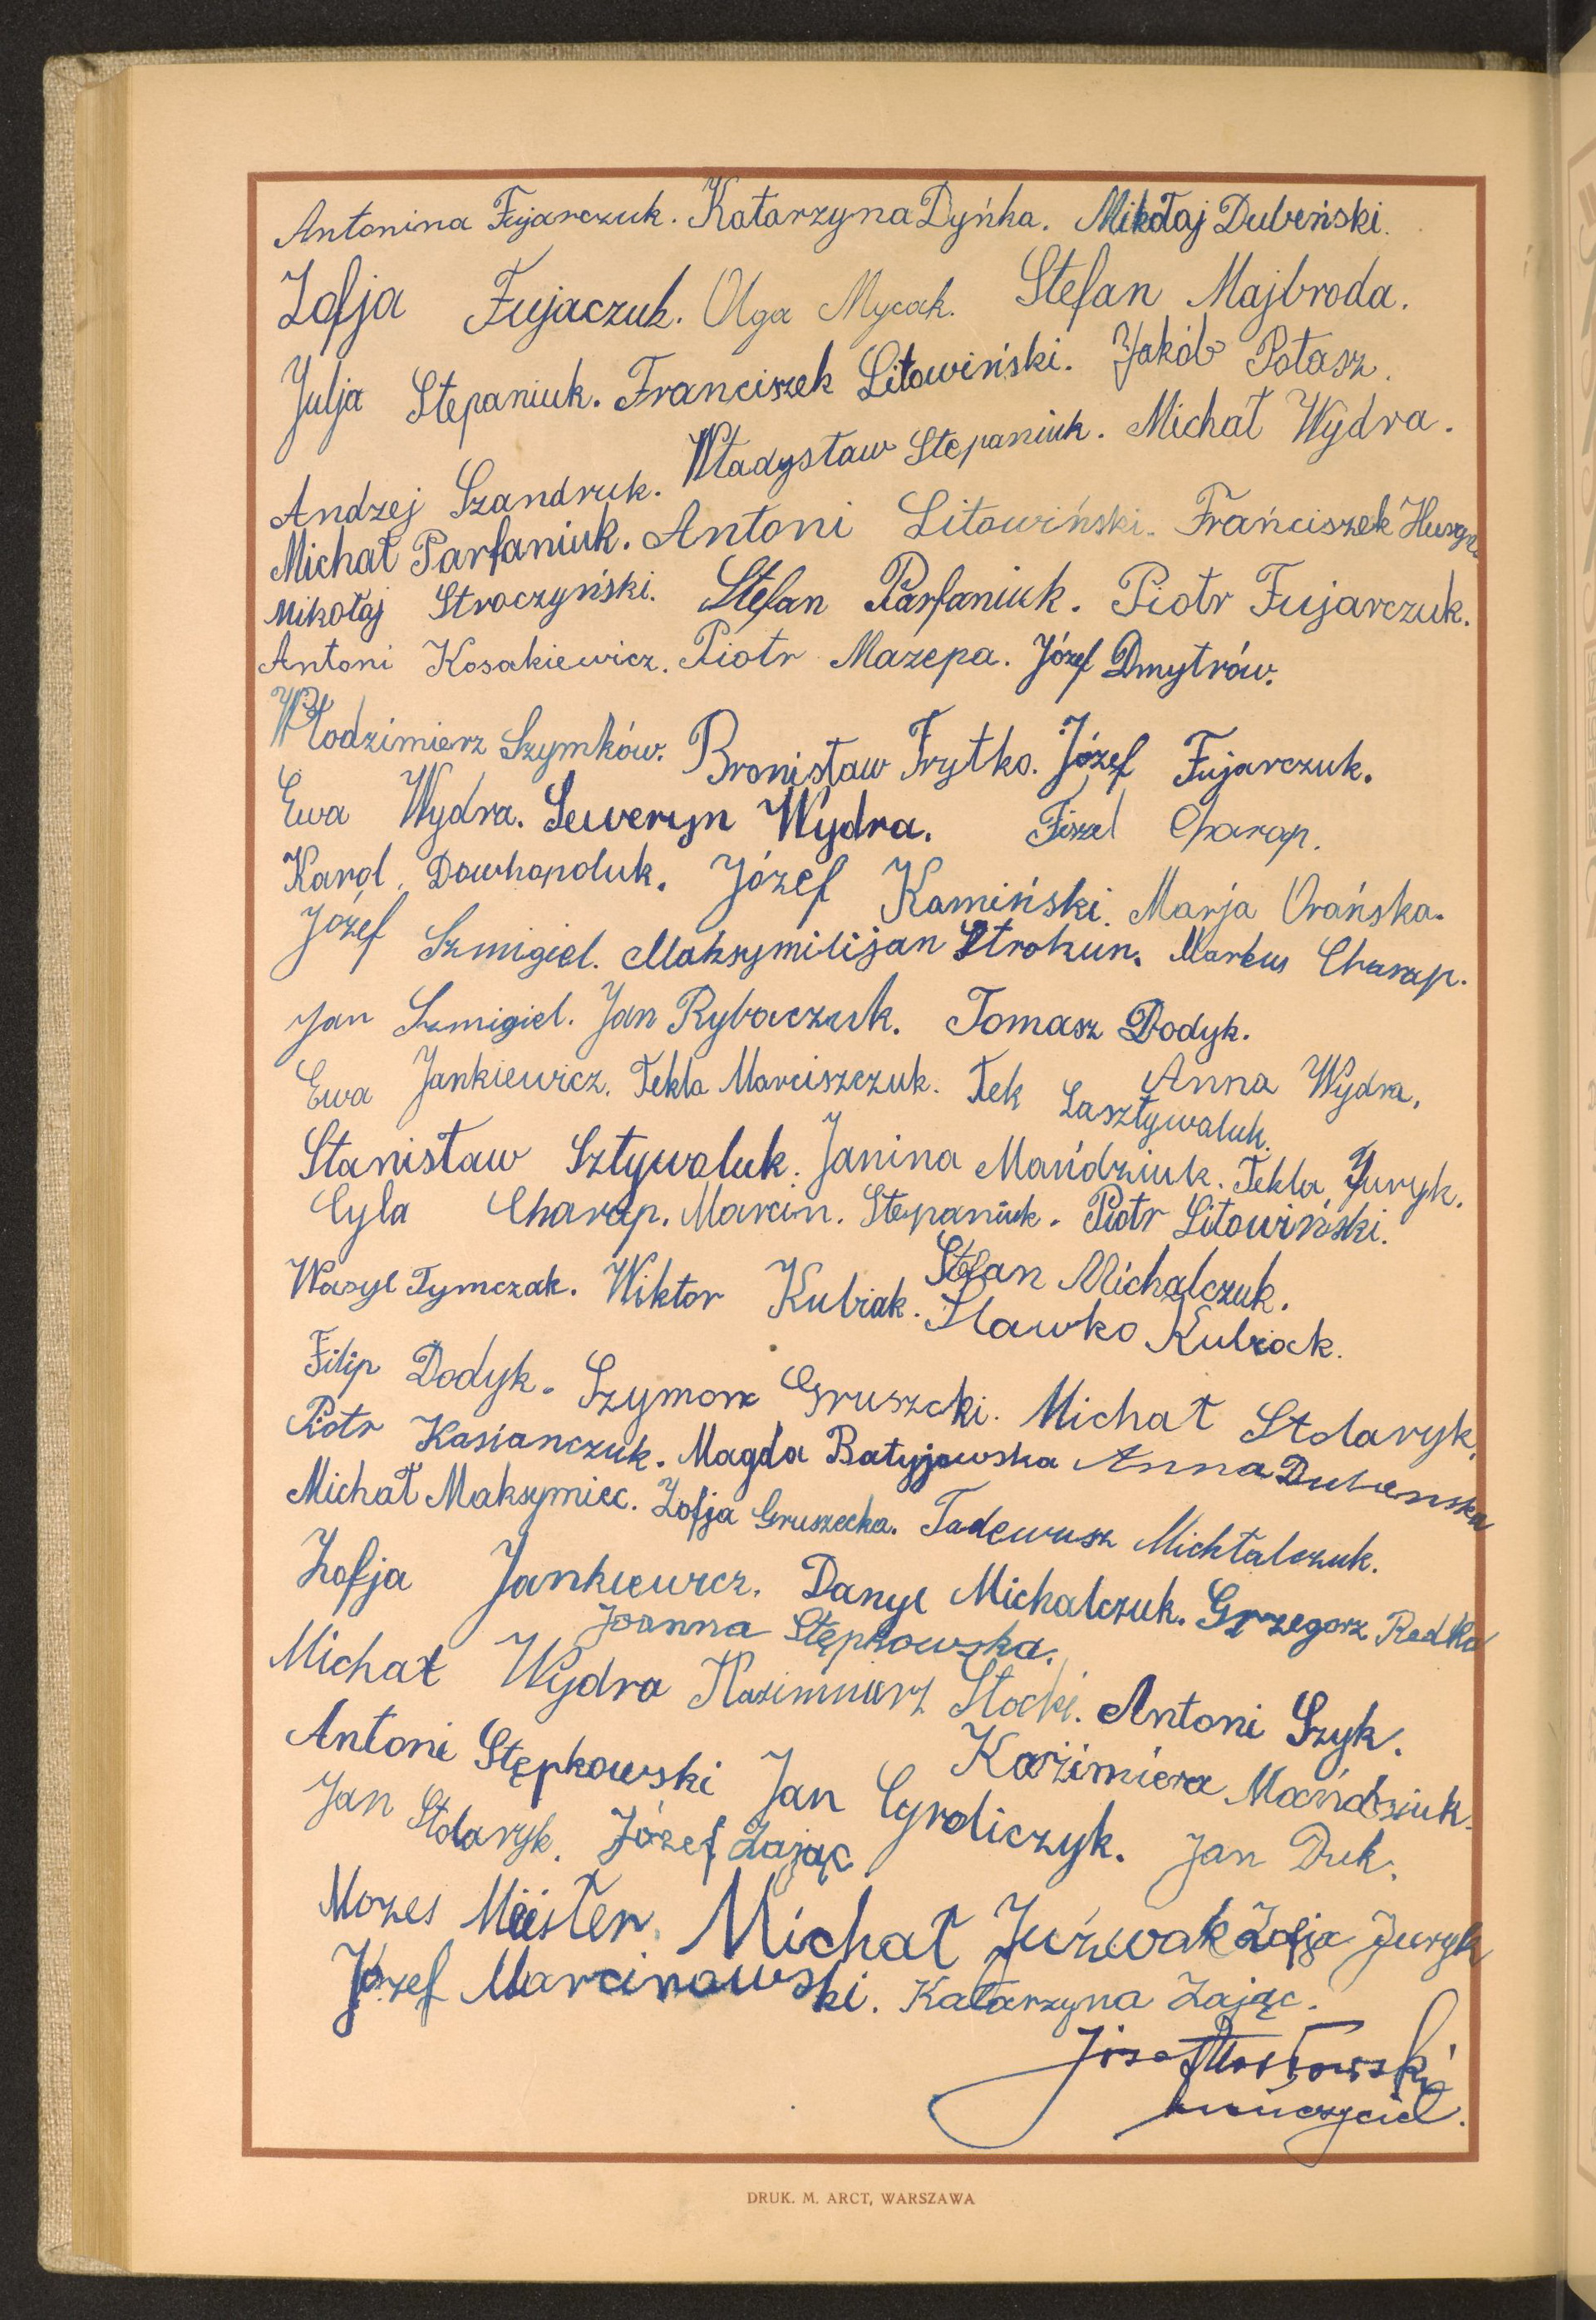 Antonina Fujarczuk. Katarzyna Dyńka. Mikołaj Dubeński.
Zofja Fujaczuk. Olga Mycak. Stefan Majbroda.
Julja Stepaniuk. Franciszek Litowiński. Jakób Potasz.
Andzej Szandruk. Władysław Stepaniuk. Michał Wydra.
Michał Parfaniuk. Antoni Litowiński. Frańciszek
Mikołaj Stroczyński. Stefan Parfaniuk. Piotr Fujarczuk.
Antoni Kosakiewicz. Piotr Mazepa. Józef Dmytrów.
Włodzimierz Szymków. Bronisław Frytko. Józef Fujarczuk.
Ewa Wydra. Seweryn Wydra. Fiszel Charap.
Karol Dowhopoluk. Józef Kamiński. Marja Orańska.
Józef Szmigiel. Maksymilijan Strokun. Markus Charap.
Jan Szmigiel. Jan Rybaczuk. Tomasz Dodyk.
Ewa Jankiewicz. Tekla Marciszczuk. Tek Lasztywaluk. Anna Wydra.
Stanisław Sztywaluk. Janina Mańdziuk. Tekla Juryk.
Cyla Charap. Marcin. Stepaniuk. Piotr Litowiński.
Wasyl Tymczak. Wiktor Kubiak. Stefan Michalczuk.
Sławko Kubiak.
Filip Dodyk. Szymon Gruszcki. Michał Stolaryk.
Piotr Kasianczuk. Magda Batyjowska Anna Dubenska
Michał Maksymiec. Zofja Gruszecka. Tadewusz Michtalczuk.
Zofja Jankiewicz. Danyl Michalczuk. Grzegorz Redka
Joanna Stępkowska.
Michał Wydra Kazimierz Stocki. Antoni Szyk.
Antoni Stępkowski Jan Cyroliczyk. Kazimiera Mańdziuk.
Jan Stolaryk. Józef Zając Jan Duk.
Mozes Meister. Michał Juźwak Zofja Juryk
Józef Marcinowski. Katarzyna Zając.
nauczyciel.
DRUK. M. ARCT, WARSZAWA